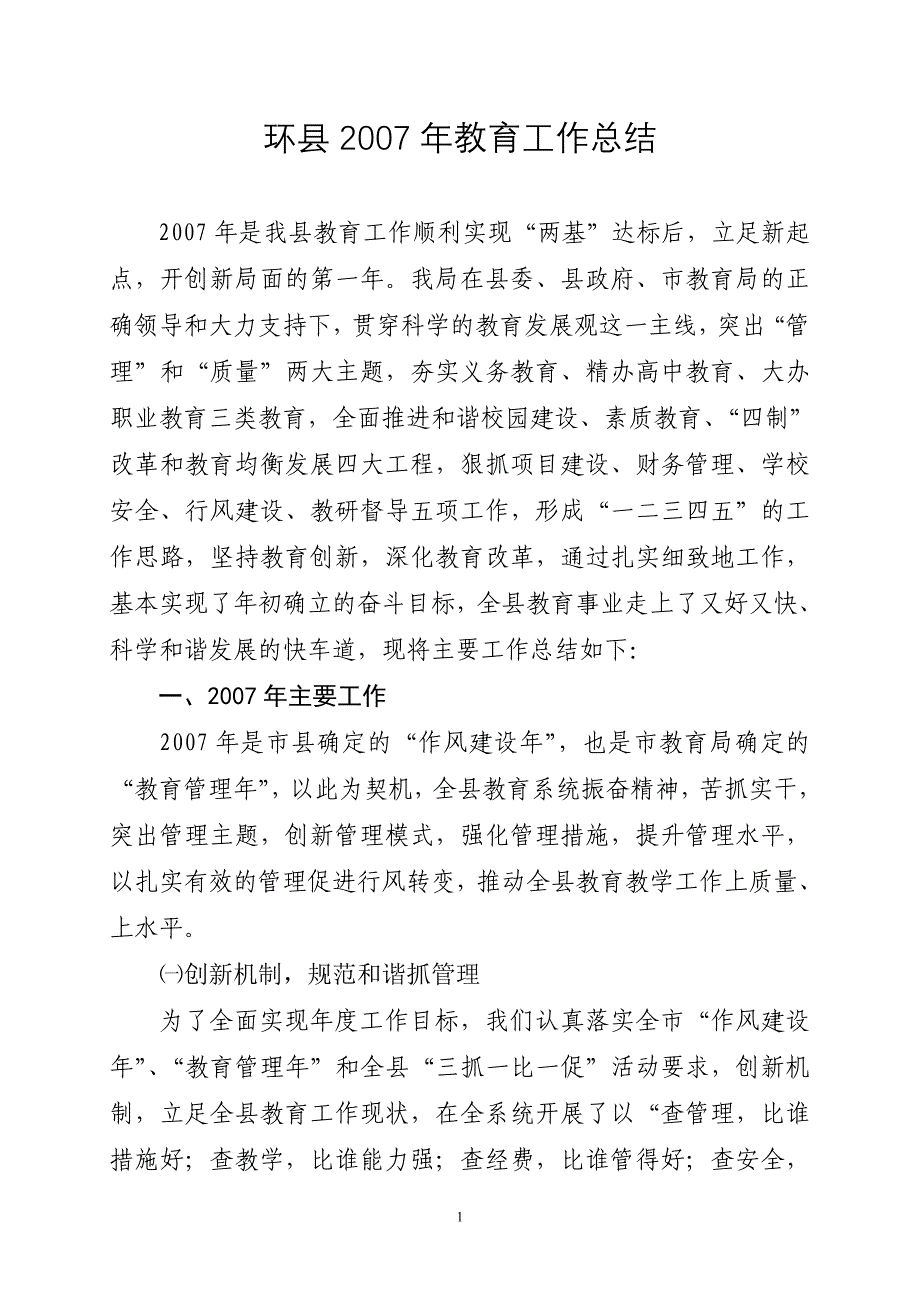 环县 2007 年教育工作总结
2007 年是我县教育工作顺利实现“两基”达标后，立足新起
点，开创新局面的第一年。我局在县委、县政府、市教育局的正
确领导和大力支持下，贯穿科学的教育发展观这一主线，突出“管
理”和“质量”两大主题，夯实义务教育、精办高中教育、大办
职业教育三类教育，全面推进和谐校园建设、素质教育、“四制”
改革和教育均衡发展四大工程，狠抓项目建设、财务管理、学校
安全、行风建设、教研督导五项工作，形成“一二三四五”的工
作思路，坚持教育创新，深化教育改革，通过扎实细致地工作，
基本实现了年初确立的奋斗目标，全县教育事业走上了又好又快、
科学和谐发展的快车道，现将主要工作总结如下：
一、2007 年主要工作
2007 年是市县确定的“作风建设年”，也是市教育局确定的
“教育管理年”，以此为契机，全县教育系统振奋精神，苦抓实干，
突出管理主题，创新管理模式，强化管理措施，提升管理水平，
以扎实有效的管理促进行风转变，推动全县教育教学工作上质量、
上水平。
㈠创新机制，规范和谐抓管理
为了全面实现年度工作目标，我们认真落实全市“作风建设
年”、“教育管理年”和全县“三抓一比一促”活动要求，创新机
制，立足全县教育工作现状，在全系统开展了以“查管理，比谁
措施好；查教学，比谁能力强；查经费，比谁管得好；查安全，
1